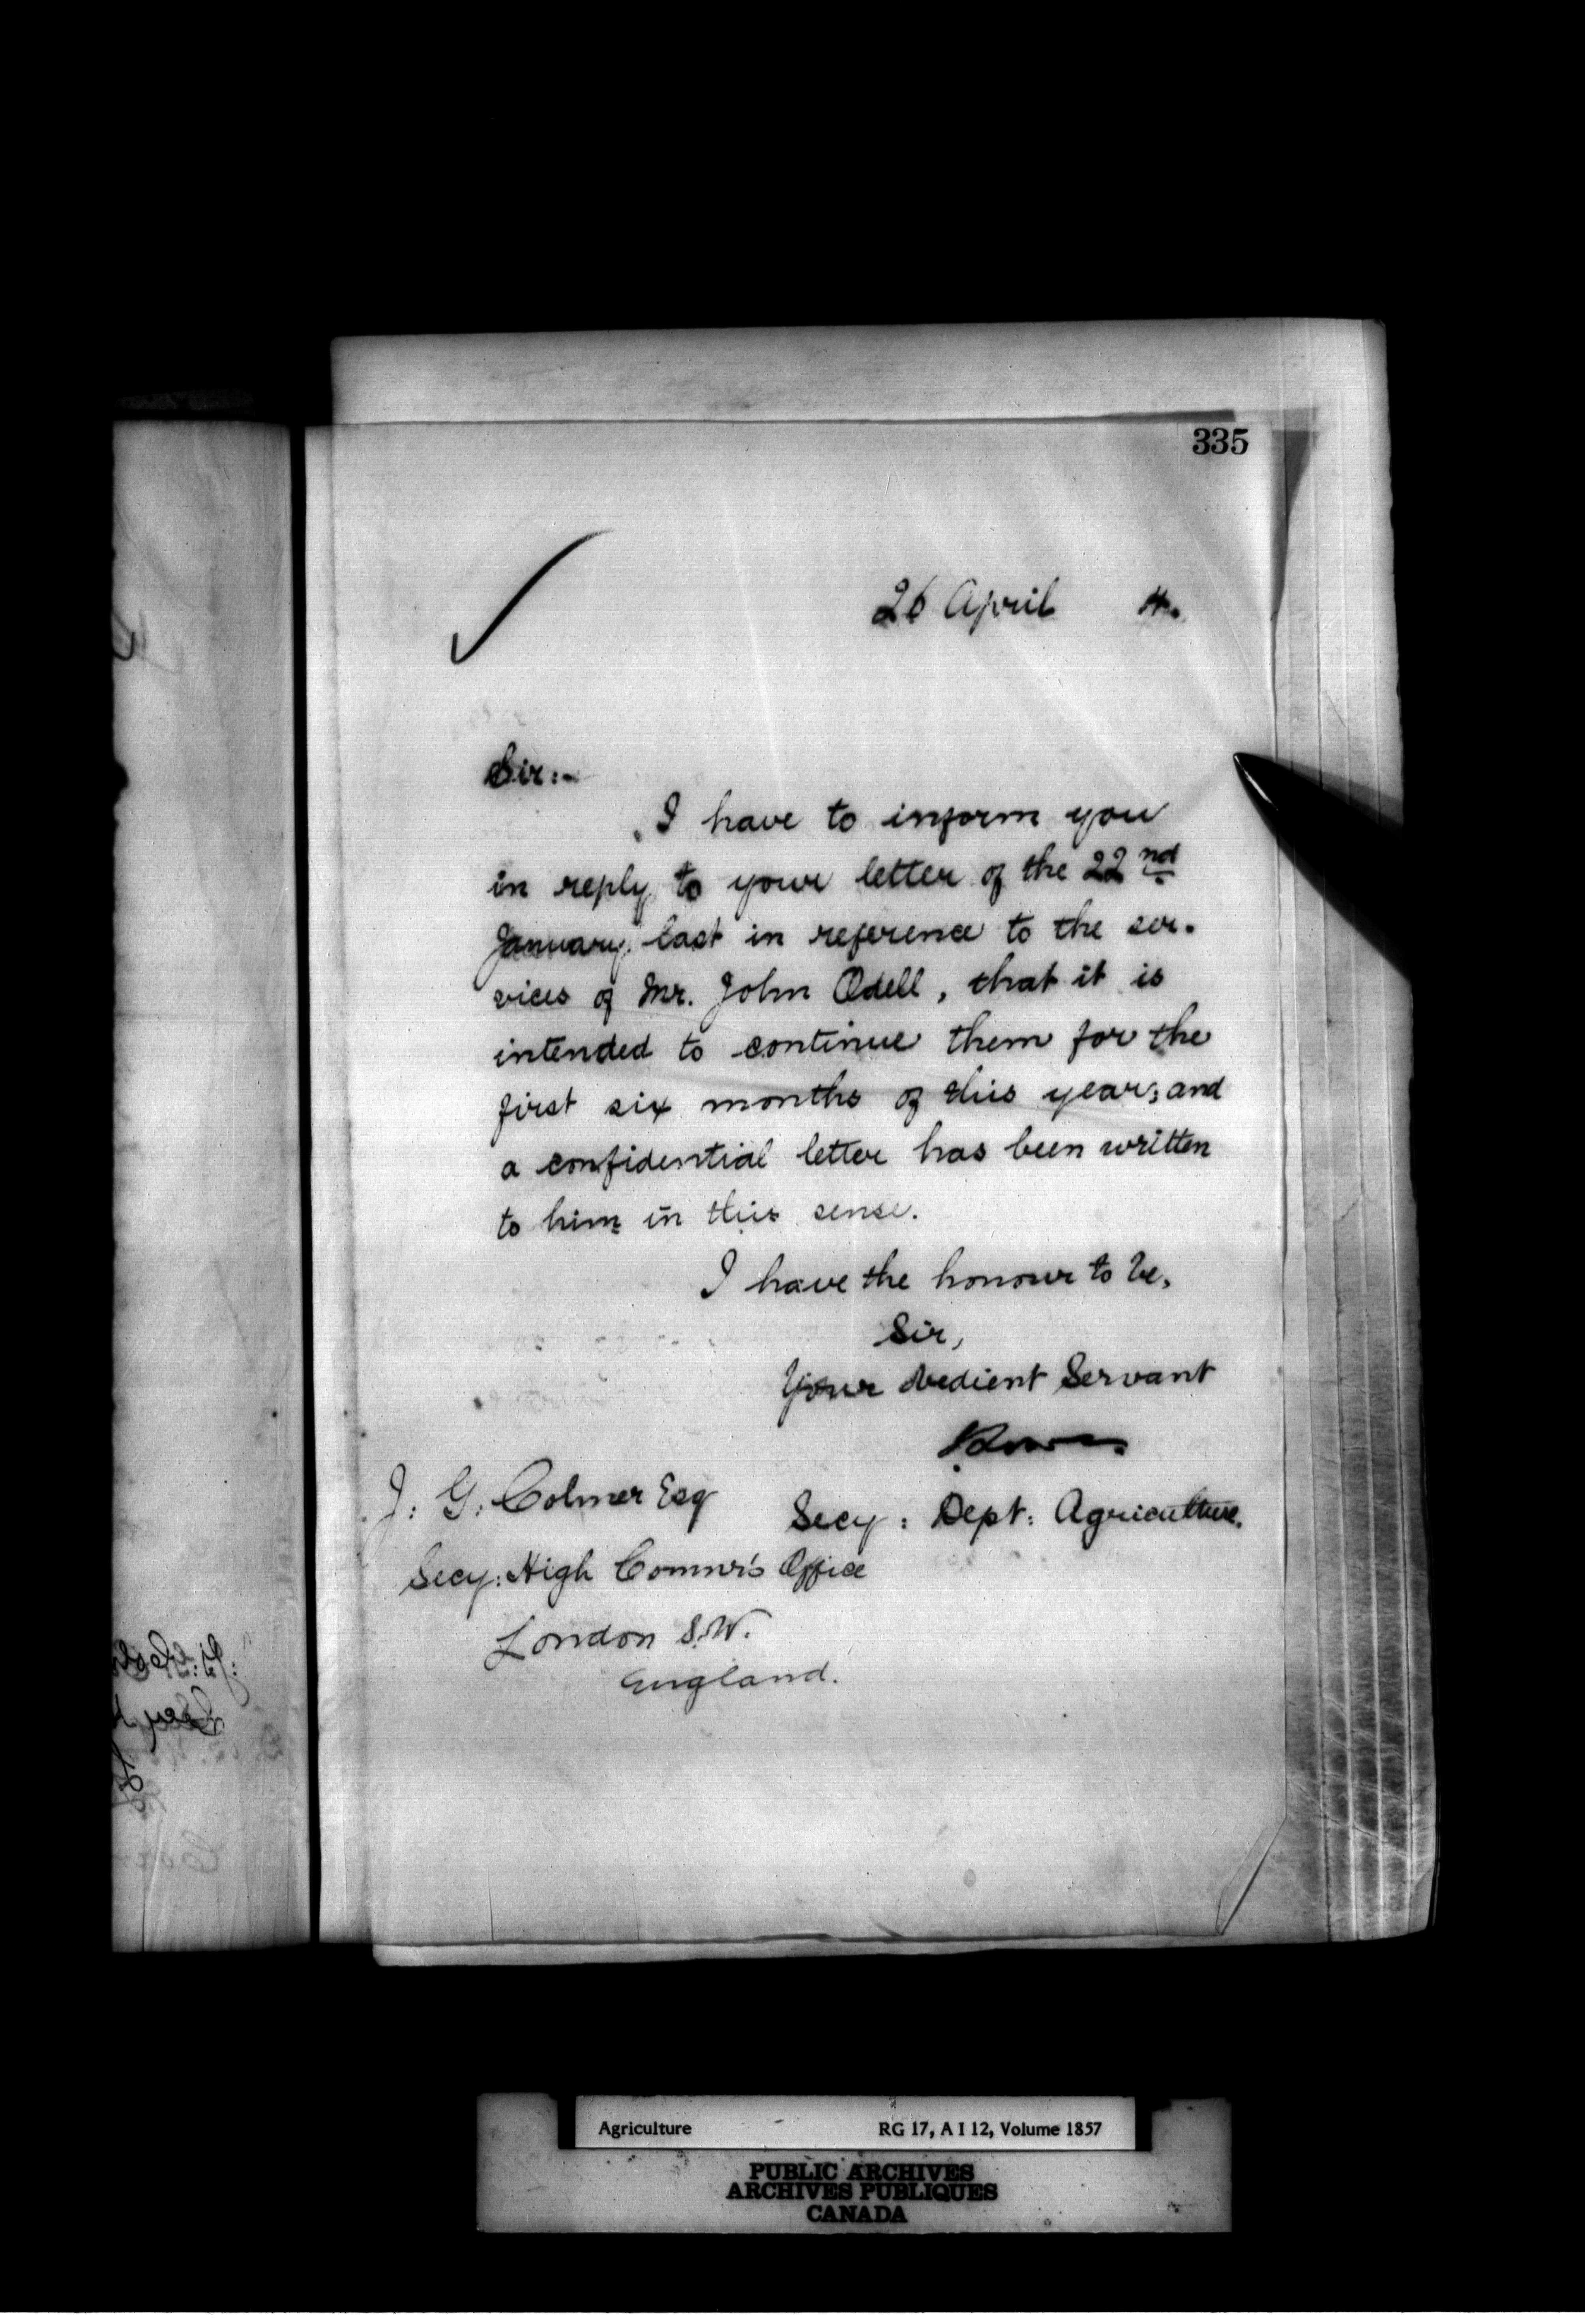 335
26 April 4.
Sir:-
I have to inform you
in reply to your letter of the 22nd
January last in reference to the ser-
vices of Mr. John Odell, that it is
intended to continue them for the
first six months of this year; and
a confidential letter has been written
to him in this sense.
I have the honour to be,
Sir,
Your obedient Servant
J: G: Colmer Esq
Secy: Dept: Agriculture.
Secy: High Commr's Office
London S.W.
England.
Agriculture RG 17, A I 12, Volume 1857
PUBLIC ARCHIVES
ARCHIVES PUBLIQUES
CANADA